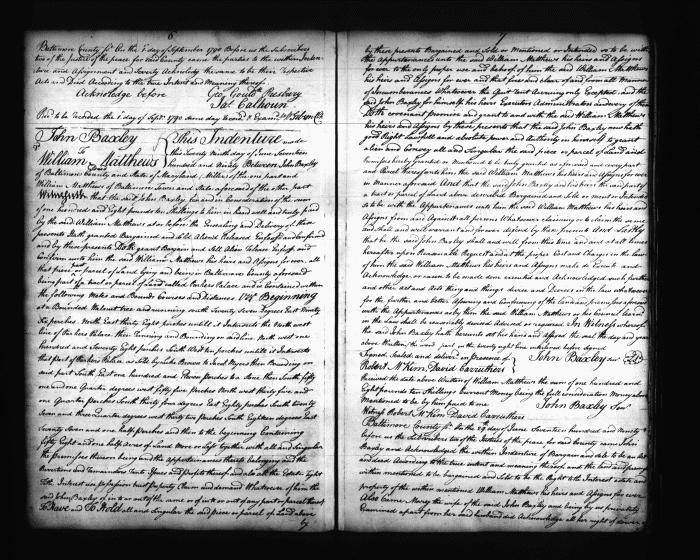 6
Baltimore County Sc. On the 1 day of September 1790 Before us the Subscribers
two of the Justices of the peace for said County came the parties to the within Inden
ture and Assignment and Severly Acknowledge the same to be their respective
Acts and Deed According to the true Intent and Meaning thereof
Acknoledge before Geo Gould Presbury
Jas Calhoun
Recd to be recorded the 1 day of Septr 1790 same day record & Examd
John Baxley
To
William Matthews
This Indenture made
this Twenty Ninth day of June Seventeen
hundred and Ninety Between John Baxley
of Baltimore County and State of Maryland Miller of the one part and
William Matthews of Baltimore Town and State aforesaid of the other part
Witnesseth that the said John Baxley for and in Consideration of the sum
of one hundred and Eight pounds ten Shillings to him in hand well and truly paid
by the said William Matthews at or before the Ensealing and Delivery of these
presents Hath granted Bargained and Sold Aliened Released Enfeoffed and Confirmed
and by these presents Doth grant Bargain and Sell Alien Release Enfeoff and
Confirm unto him the said William Matthews his heirs and Assigns for ever all
that piece or parcel of Land lying and being in Baltimore County aforesaid
being part of a tract or parcel of Land called Parkers Palace and is Contained within
the following Metes and Bounds Courses and Distances Viz Beginning
at a Bounded Walnut tree and running south Seventy Seven degrees East Ninety
Six perches North East thirty Eight perches untill it Intersects the North west
line of the whole Palace then Running and Bounding on said line North west one
hundred and Seventy Eight perches South West ten perches untill it Intersects
that part of Parkers Palace as Sold by Luke Bowen to Saml Myers then Bounding on
said part South East one hundred and Three perches to a Stone then South fifty
one and one Quarter degrees west fifty five perches North West thirty four and
one Quarter perches South thirty four degrees East Eighty perches South twenty
Seven and three Quarter degrees west thirty two perches South Eighteen degrees East
Twenty Seven and one half perches and then to the beginning Containing
fifty Eight and one half Acres of Land more or less Together with all and Singular
the premises thereon being and the appurtenances thereto belonging and the
Reversions and Remainders Rents Issues and Profits thereof and also all the Estate Right
Title Interest use possession trust Property Claim and demand Whatsoever of him the
said John Baxley of in to or out of the same or of in to or out of any part or parcel thereof
To Have and To Hold all and Singular the said piece or parcel of Land above
by
7
by these presents Bargained and Sold or Mentioned or Intended so to be with
the Appurtenances unto the said William Matthews his heirs and Assigns
for ever to the only proper use and behoof of him the said William Matthews
his heirs and Assigns for ever and that free and clear of and from all Manner
of Incumbrances Whatsoever the Quit Rent Accruing only Excepted and the
said John Baxley for himself his heirs Executors Administrators and every of them
Doth covenant promise and grant to and with the said William Matthews
his heirs and Assigns by these presents that the said John Baxley now hath
good Right lawfull and absolute power and Authority in himself to grant
alien and Convey all and Singular the said piece or parcel of Land
premises hereby granted or Mentioned to be hereby granted as aforesaid and every part
and Parcel thereof unto him the said William Matthews his heirs and Assigns for ever
in Manner aforesaid And that the said John Baxley and his heirs the said part of
a tract or parcel of Land above described Bargained and Sold or ment or Intended
so to be with the Appurtenances unto him the said William Matthews his heirs and
Assigns from and Against all persons Whatsoever claiming or to claim the same
and shall and will warrant and for ever defend by these presents And Lastly
that he the said John Baxley shall and will from this time and at all times
hereafter upon Reasonable Request and at the proper Cost and Charges in the Law
of him the said William Matthews his heirs and Assigns make do Execute and
Acknowledge or cause to be made done executed and Acknowledged such further
and other act and Acts thing and things device and Devices in the law whatsoever
for the further and better Assuring and Confirming of the Land and premises aforesaid
with the Appurtenances as by him the said William Matthews or his Council learned
in the Law shall be reasonably devised Advised or required In Witness whereof
the said John Baxley hath hereunto set his hand and Affixed his seal the day and year
above Written
Signed Sealed and deliverd in presence of John Baxley
Robert McKim David Carruthers
Received the date above Written of William Matthews the sum of one hundred and
Eight pounds ten Shillings current Money being the full consideration Money above
Mentioned to be by him paid to me John Baxley
Witness Robert McKim David Carruthers
Baltimore County Sc. On the 29 day of June Seventeen hundred and Ninety
before us the Subscribers two of the Justices of the peace for said County came John
Baxley and Acknowledged the within Indenture of Bargain and Sale to be his Act
and deed According to the true intent and meaning thereof and the land and premises
within mentioned to be bargained and Sold to be the Right title Interest estate and
property of the within mentioned William Matthews his heirs and Assigns for ever
Also Came Mary the wife of the said John Baxley and being by us privately
Examined apart from her said husband did Acknowledge all her right of dower